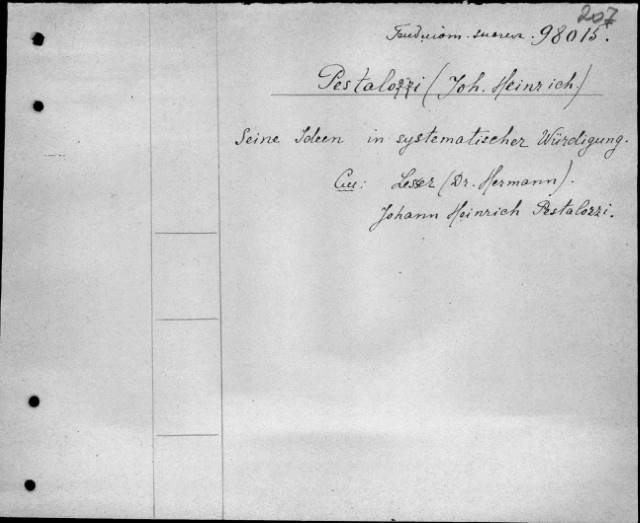 207
98015.
Pestalozzi (Joh. Heinrich.)
Seine Ideen in systematischer Würdigung.
См: Lesser (Dr. Hermann).
Johann Heinrich Pestalozzi.